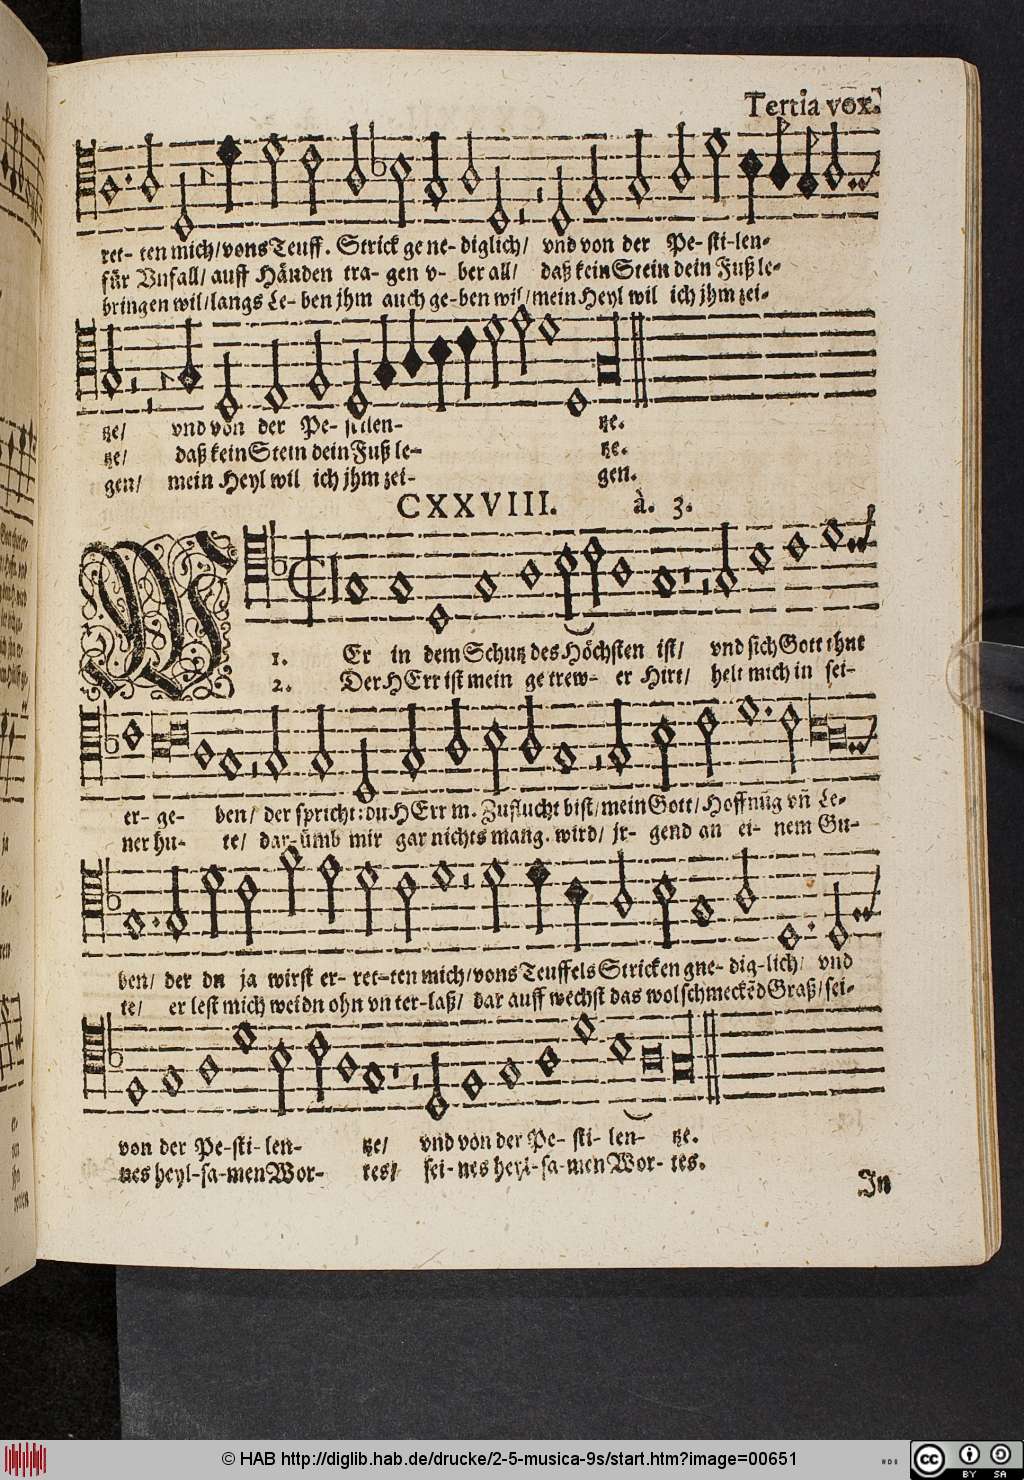 Tertia vox.
ret- ten mich/ vons Teuff. Strick ge ne- diglich/ vnd von der Pe- sti- len-
für Vnfall/ auff Händen tra- gen v- ber all/ daß kein Stein dein Fuß le-
bringen wil/ langs Le- ben jhm auch ge- ben wil/ mein Heyl wil ich jhm zei-
tze/ vnd von der Pe- stilen- tze.
tze/ daß kein Stein dein Fuß le- tze.
gen/ mein Heyl wil ich jhm zei- gen.
CXXVIII. à. 3.
W
1. Er in dem Schutz des Höchsten ist/ vnd sich Gott thut
2. Der HErr ist mein ge trew- er Hirt/ helt mich in sei-
er- ge- ben/ der spricht: du HErr m. Zuflucht bist/ mein Gott/ Hoffnũg vñ Le-
ner hu- te/ dar- ümb mir gar nichts mang. wird/ jr- gend an ei- nem Gu-
ben/ der du ja wirst er- ret- ten mich/ vons Teuffels Stricken gne- dig- lich/ vnd
te/ er lest mich weidn ohn vnter- laß/ dar auff wechst das wolschmeckẽd Graß/ sei-
von der Pe- sti- len- tze/ vnd von der Pe- sti- len- tze.
nes heyl- sa- men Wor- tes/ sei- nes heyl- sa- men Wor- tes.
Jn
© HAB http://diglib.hab.de/drucke/2-5-musica-9s/start.htm?image=00651
HAB
cc BY SA